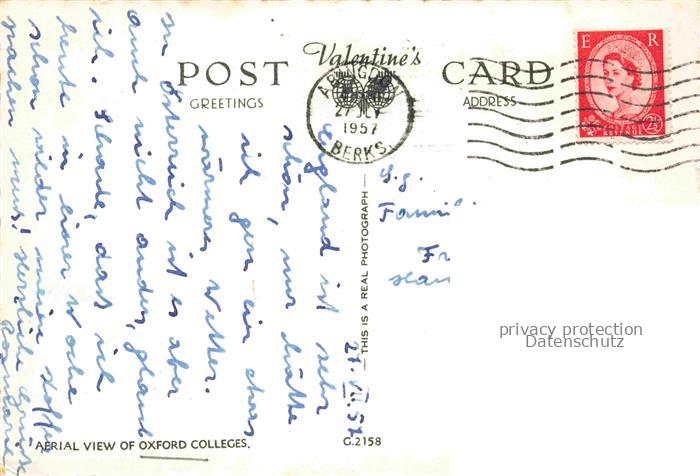 Valentine's
POST CARD
GREETINGS
ADDRESS
E R
POSTAGE
REVENUE
2½
ABINGDON
27 JLY
1957
BERKS.
27. VII. 57
England ist sehr
schön, nur hätte
ich gern ein etwas
wärmeres Wetter.
In Österreich ist es aber
auch nicht anders, glaub
ich. Schade, dass ich
heute in einer Woche
schon wieder meine Koffer
packen muss! Herzliche Grüsse
Rosmarie
S.g.
Famil
Fr
Han
THIS IS A REAL PHOTOGRAPH
AERIAL VIEW OF OXFORD COLLEGES.
G.2158
privacy protection
Datenschutz